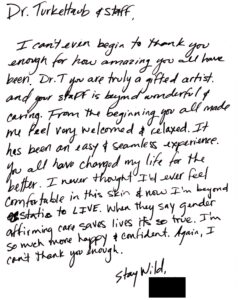 Dr. Turkeltaub & staff,
I can't even begin to thank you
enough for how amazing you all have
been. Dr. T you are truly a gifted artist.
and your staff is beyond wonderful &
caring. From the beginning you all made
me feel very welcomed & relaxed. It
has been an easy & seamless experience.
You all have changed my life for the
better. I never thought I'd ever feel
comfortable in this skin & now I'm beyond
estatic to LIVE. When they say gender
affirming care saves lives its so true. I'm
so much more happy & confident. Again, I
can't thank you enough.
Stay Wild,